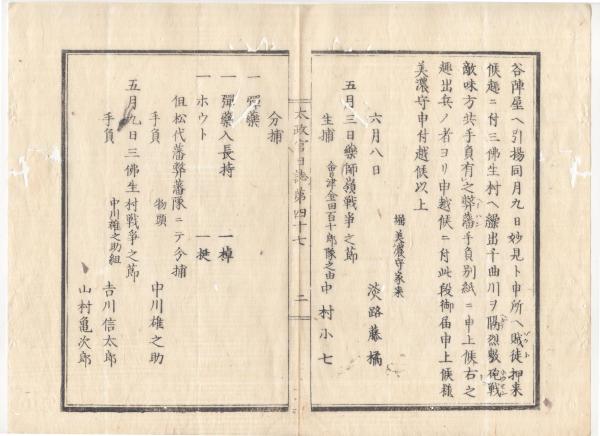 谷陣屋ヘ引揚同月九日妙見ト申所ヘ賊徒押来
候趣ニ付三佛生村ヘ繰出千曲川ヲ隔烈敷砲戰
敵味方共手負有之弊藩手負別紙ニ申上候右之
趣出兵ノ者ヨリ申越候ニ付此段御届申上候様
美濃守申付越候以上
堀美濃守家来
六月八日 淡路藤橘
五月三日藥師嶺戰爭之節
生捕 會津金田百十郎隊之由 中村小七
太政官日誌第四十七 二
分捕
一 彈藥
一 彈藥入長持 一棹
一 ホウト 一挺
但松代藩弊藩隊ニテ分捕
手負 物頭 中川雄之助
五月九日三佛生村戰爭之節
手負 中川雄之助組 吉川信太郎
山村亀次郎